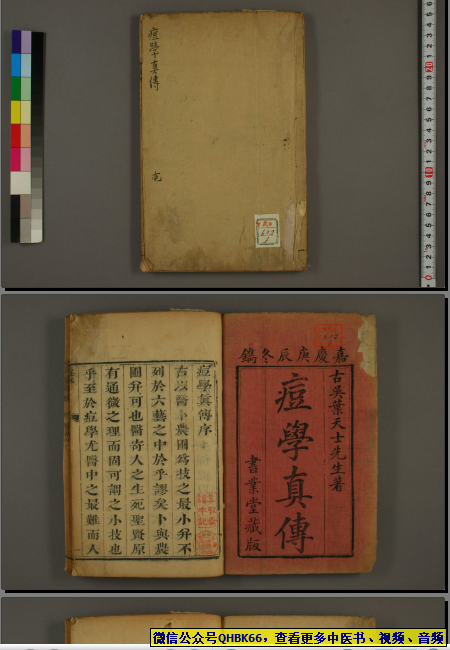 痘學真傳
壳
嘉慶庚辰冬鐫
古吳葉天士先生著
痘學真傳
書業堂藏版
痘學眞傳序
吉以醫卜農圃爲技之最小幷不
列於六藝之中於乎謬矣卜與農
圃幷可也醫寄人之生死聖賢原
有通微之理而固可謂之小技也
乎至於痘學尤醫中之最難而人
微信公众号QHBK66，查看更多中医书、视频、音频